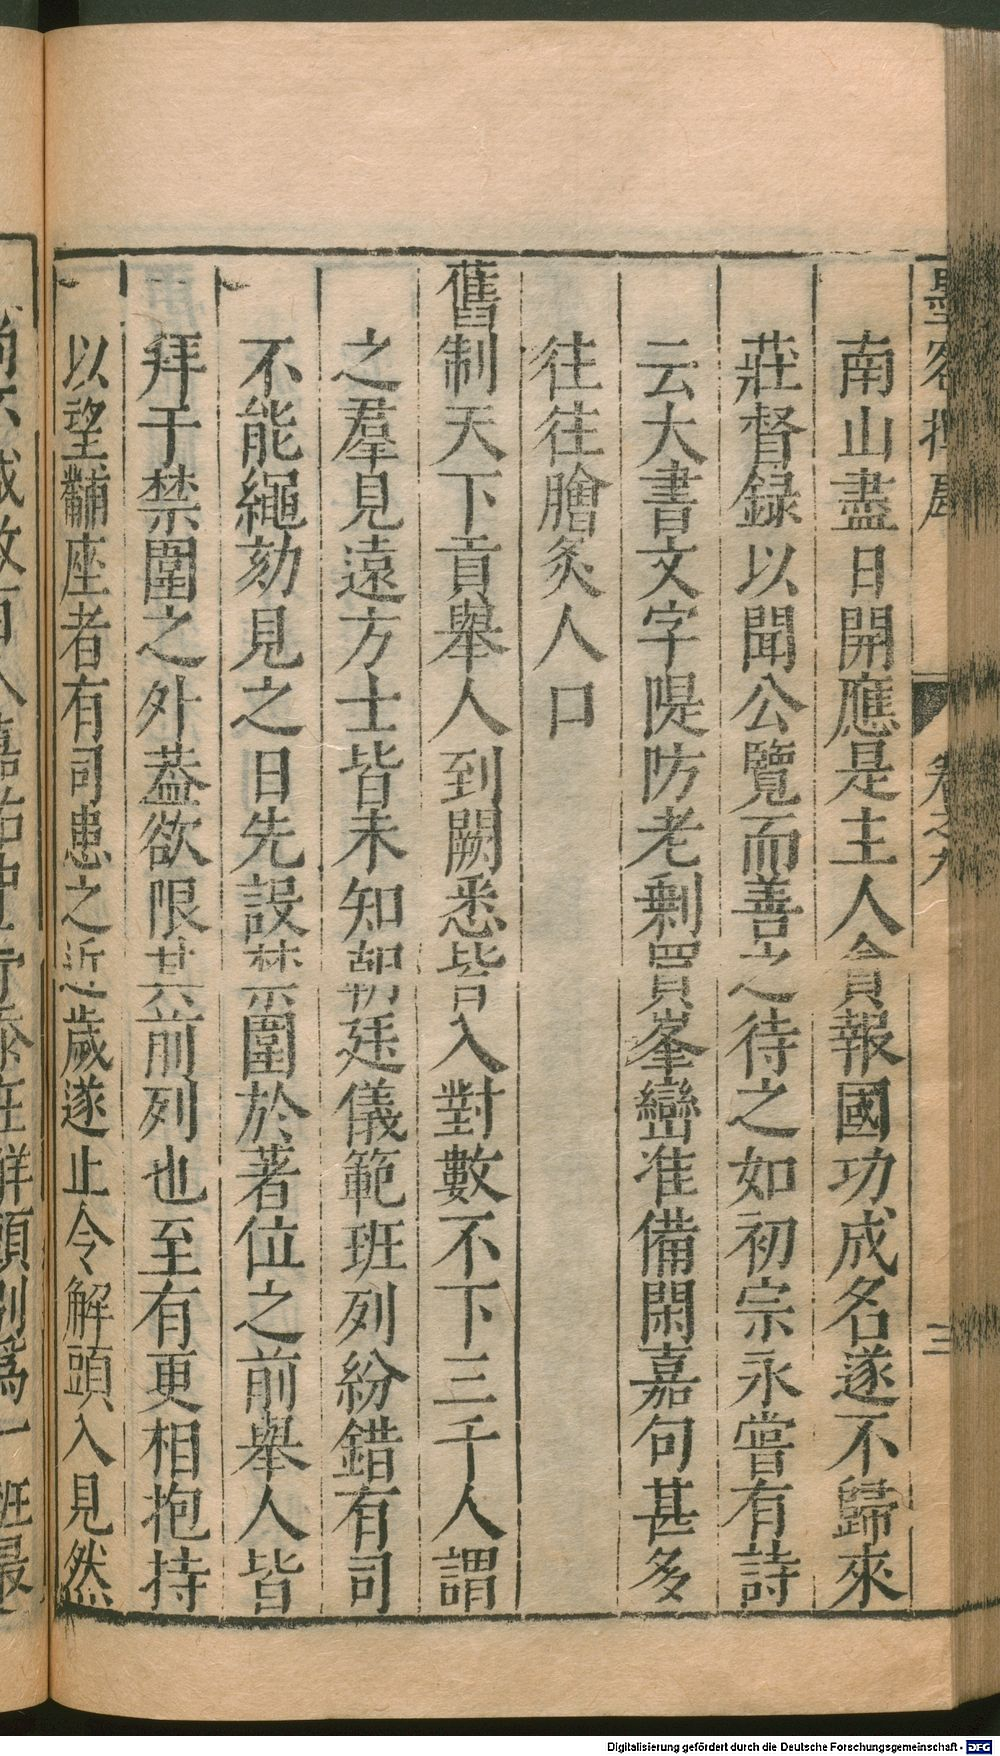 墨客揮犀 卷之九 三
南山盡日開應是主人貪報國功成名遂不歸來
莊督録以聞公覽而善之待之如初宗永嘗有詩
云大書文字隄防老剩買峯巒准備閑嘉句甚多
往往膾炙人口
舊制天下貢舉人到闕悉皆入對數不下三千人謂
之羣見遠方士皆未知朝廷儀範班列紛錯有司
不能繩劾見之日先設禁圍於著位之前舉人皆
拜于禁圍之外葢欲限其前列也至有更相抱持
以望黼座者有司患之近歲遂止令解頭入見然
尚不減數百人嘉祐中予忝在解頭別爲一班最
Digitalisierung gefördert durch die Deutsche Forschungsgemeinschaft - DFG